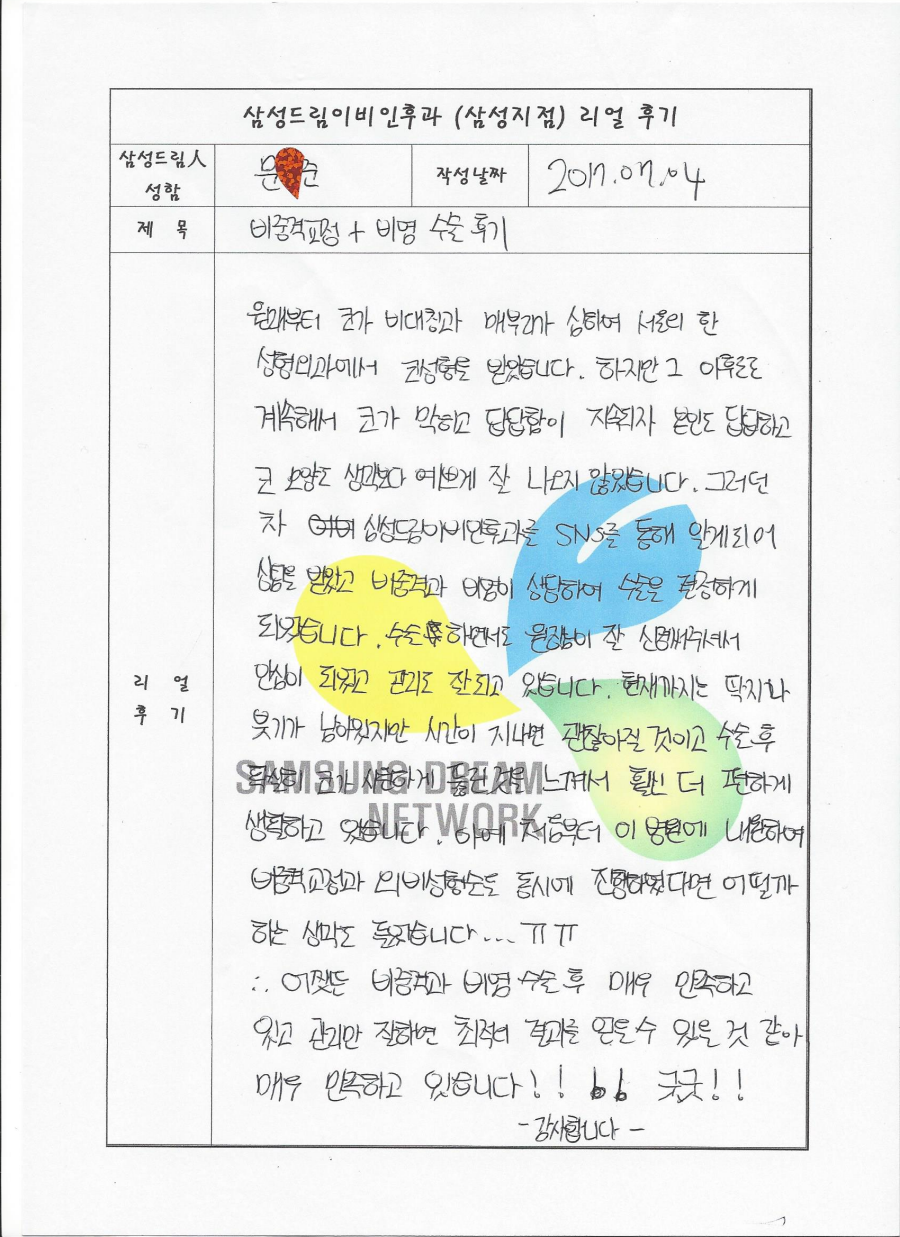 삼성드림이비인후과 (삼성지점) 리얼 후기
삼성드림人 성함
문 준
작성날짜
2017.07.04
제 목
비중격교정 + 비염 수술 후기
리 얼 후 기
원래부터 코가 비대칭과 매부리가 심하여 서울의 한
성형외과에서 코성형을 받았습니다. 하지만 그 이후로도
계속해서 코가 막히고 답답함이 지속되자 본인도 답답하고
코 모양도 생각보다 예쁘게 잘 나오지 않았습니다. 그러던
차 삼성드림이비인후과를 SNS를 통해 알게되어
상담을 받았고 비중격과 비염이 상당하여 수술을 결정하게
되었습니다. 수술 하면서도 원장님이 잘 신경써주셔서
안심이 되었고 관리도 잘 되고 있습니다. 현재까지는 딱지와
붓기가 남아있지만 시간이 지나면 괜찮아질 것이고 수술 후
확실히 코가 시원하게 뚫린 것을 느껴서 훨씬 더 편하게
생활하고 있습니다. 아예 처음부터 이 병원에 내원하여
비중격교정과 외비성형술도 동시에 진행하였다면 어떨까
하는 생각도 들었습니다... ㅠㅠ
∴ 어쨋든 비중격과 비염 수술 후 매우 만족하고
있고 관리만 잘하면 최적의 결과를 얻을 수 있을 것 같아
매우 만족하고 있습니다!! bb 굿굿!!
- 감사합니다 -
SAMSUNG DREAM
NETWORK